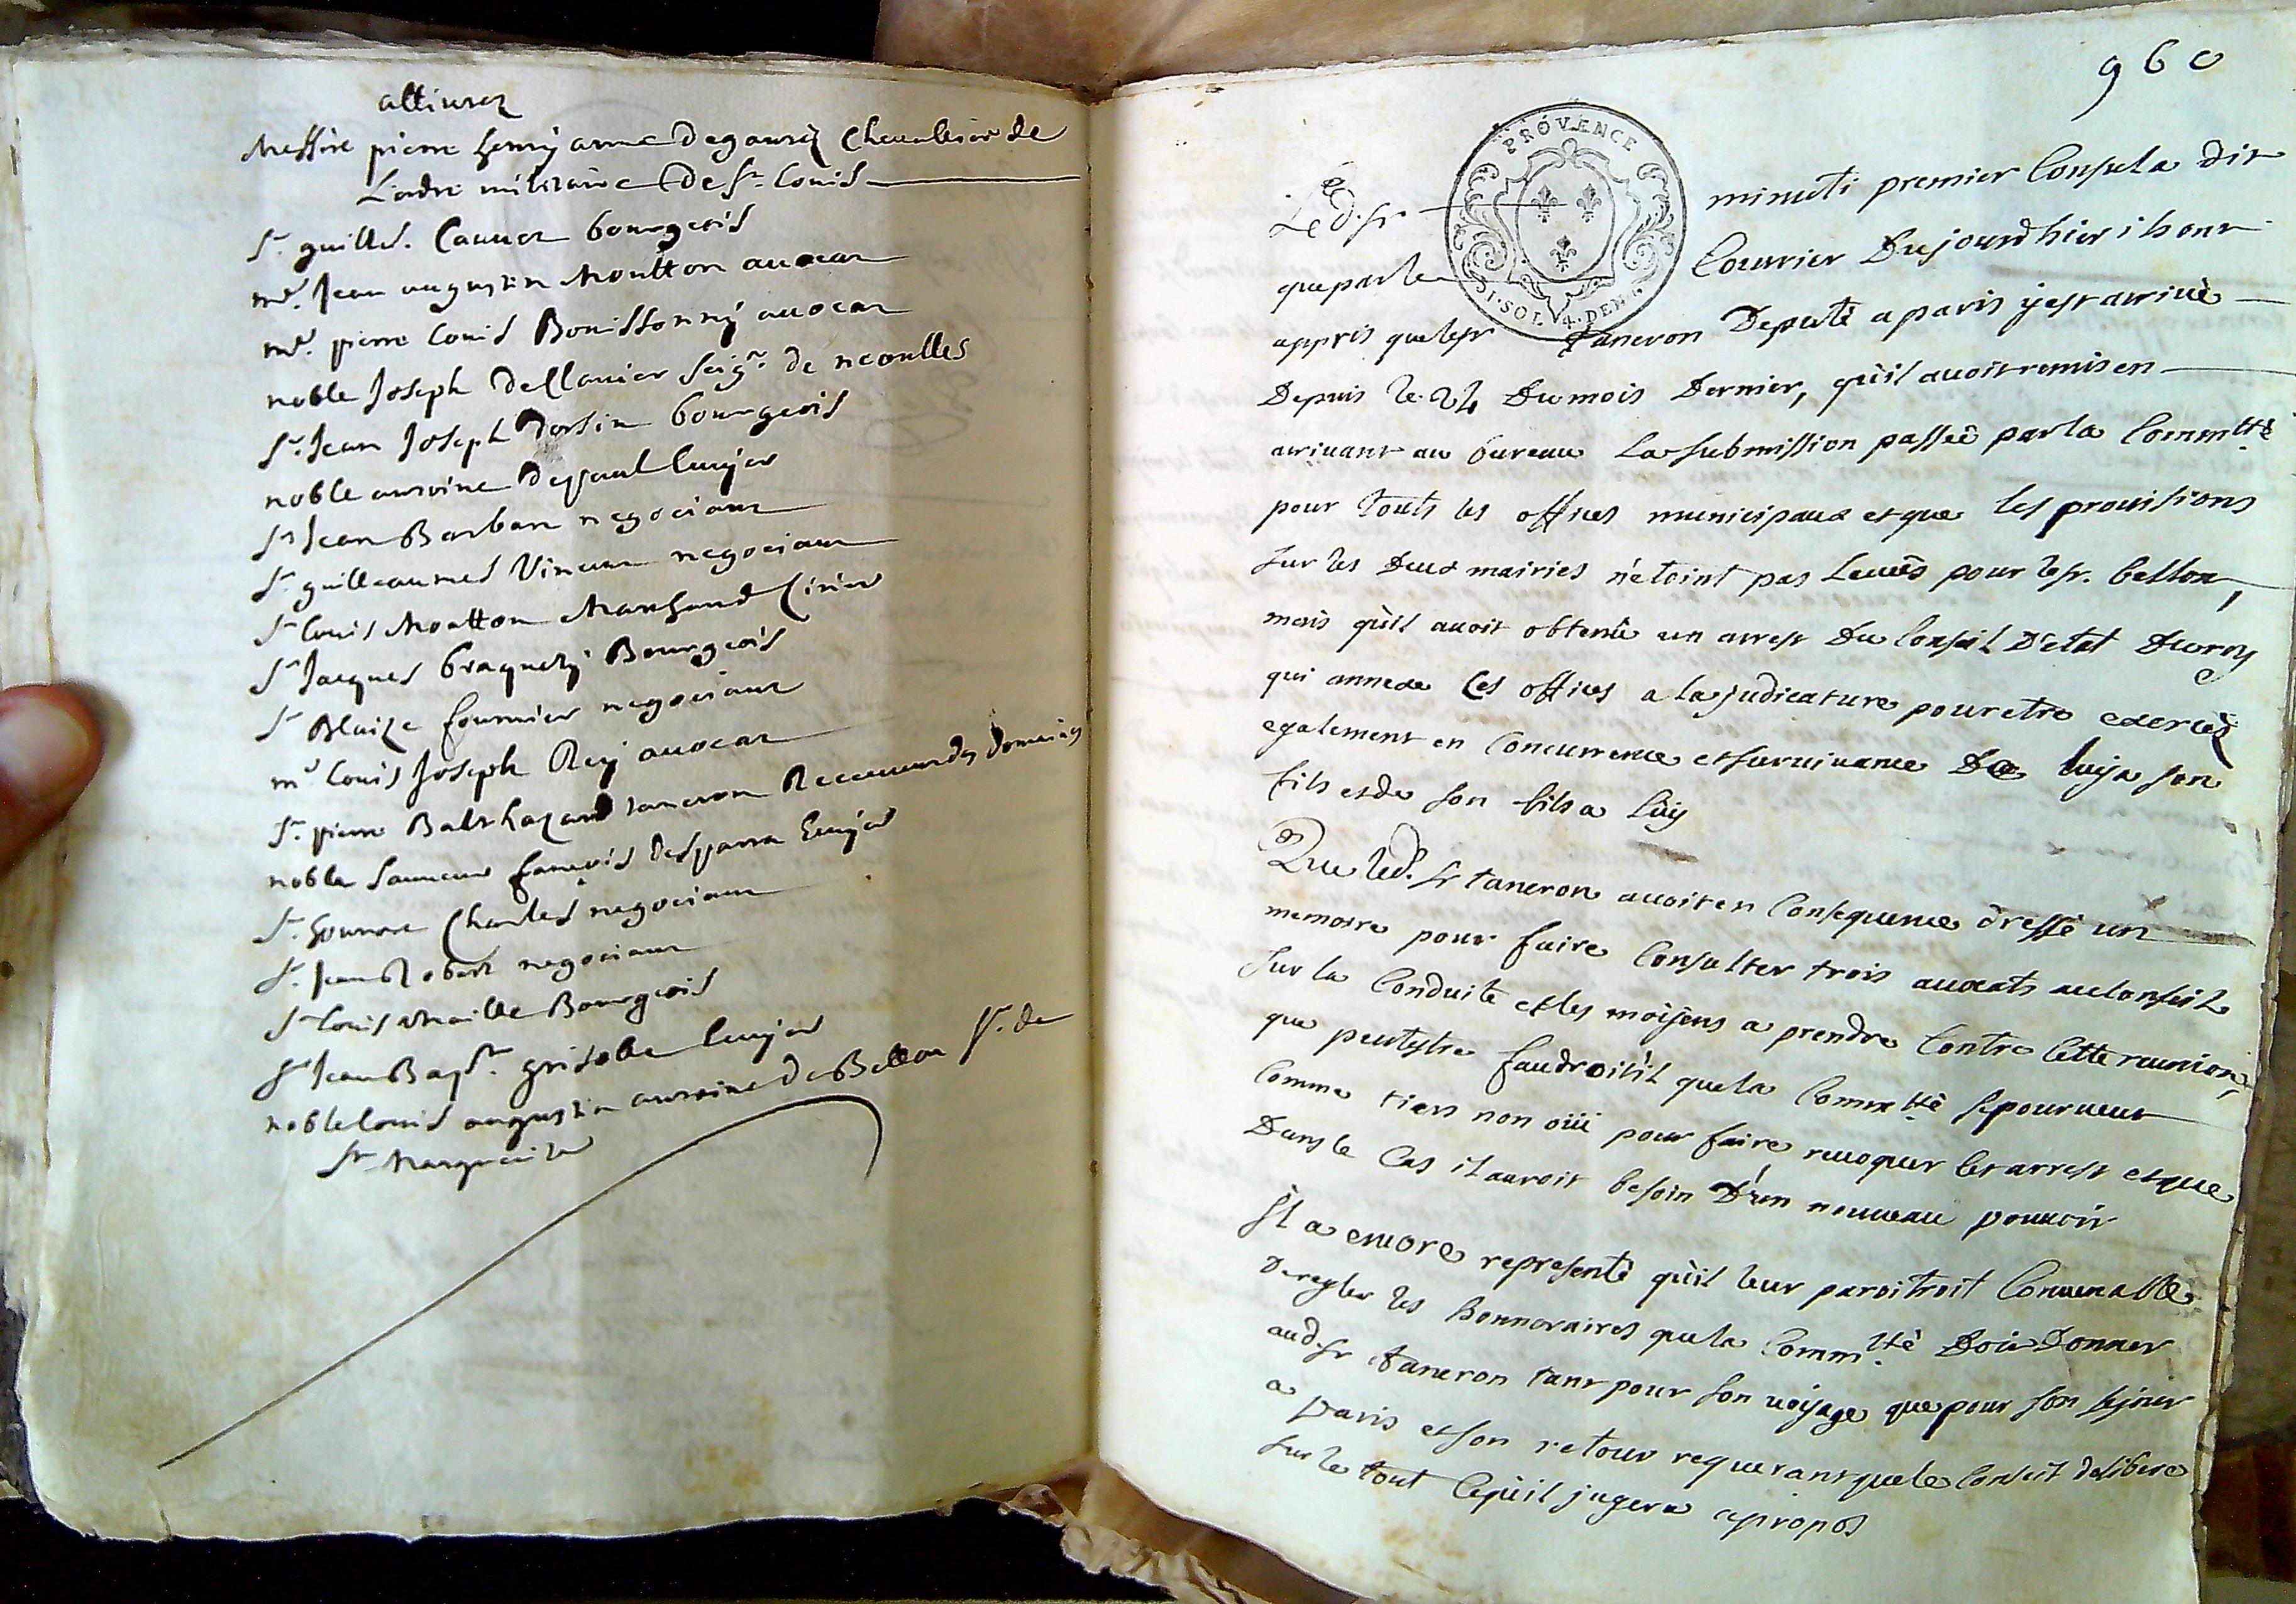 alliurez
Messire pierre henry anne de gantez Chevallier de
Lordre militaire De St. Louis
Sr guilld. Cauvet bourgeois
me. Jean augustin Moutton avocat
me. pierre Louis Bouissonny avocat
noble Joseph Dellanier Seigr. de neoulles
Sr. Jean Joseph Dorsin bourgeois
noble antoine Depaul Ecuyer
Sr Jean Barbar negociant
Sr. guilleaumes Vincent negociant
Sr Louis Moutton Marchand Cirier
Sr Jacques braquety Bourgeois
Sr Blaize fournier negociant
me Louis Joseph Rey avocat
Sr. pierre Balthazard taneron Receveur des Domaines
noble Sauveur francois Desparra Ecuyer
Sr. honnoré Charles negociant
Sr. Jean Robert negociant
Sr Louis Maille Bourgeois
Sr Jean Bapt. grisolle Ecuyer
noble Louis augustin antoine De Bellon Sr. de
Ste Marguerite
960
PROVENCE
SI. SOL 4. DEN.
Led. sr minuti premier Consul a dit
que par le Courrier Dujourdhier ils ont
appris que le sr Taneron Deputé a paris y est arrivé
Depuis le 24 Du mois Dernier, qu'il avoit remis en
arrivant au bureau La submission passée par la Commtté.
pour touts les offices municipaux et que les provisions
sur les Deux mairies n'etoint pas Levées pour le sr. bellon,
mais qu'il avoit obtenu un arrest Du Conseil D'etat Du roy
qui annexe Ces offices a la judicature pour etre exercés
egalement en Concurrence et survivance De luy a son
fils et de son fils a Luy
Que led. sr taneron avoit en Consequence dressé un
memoire pour faire Consulter trois avocats au Conseil
sur la Conduite et les moyens a prendre Contre Cette reunion,
que peutestre faudroitil que la Commtté. se pourveut
Comme tiers non oüi pour faire revoquer Cet arrest et que
Dans le Cas il auroit besoin D'un nouveau pouvoir
Il a encore representé qu'il leur paroitroit Convenable
De regler les honnoraires que la Commtté. Doit Donner
aud. sr taneron tant pour son voyage que pour son sejour
a paris et son retour requerant que le Conseil delibere
sur le tout Cequ'il jugera apropos